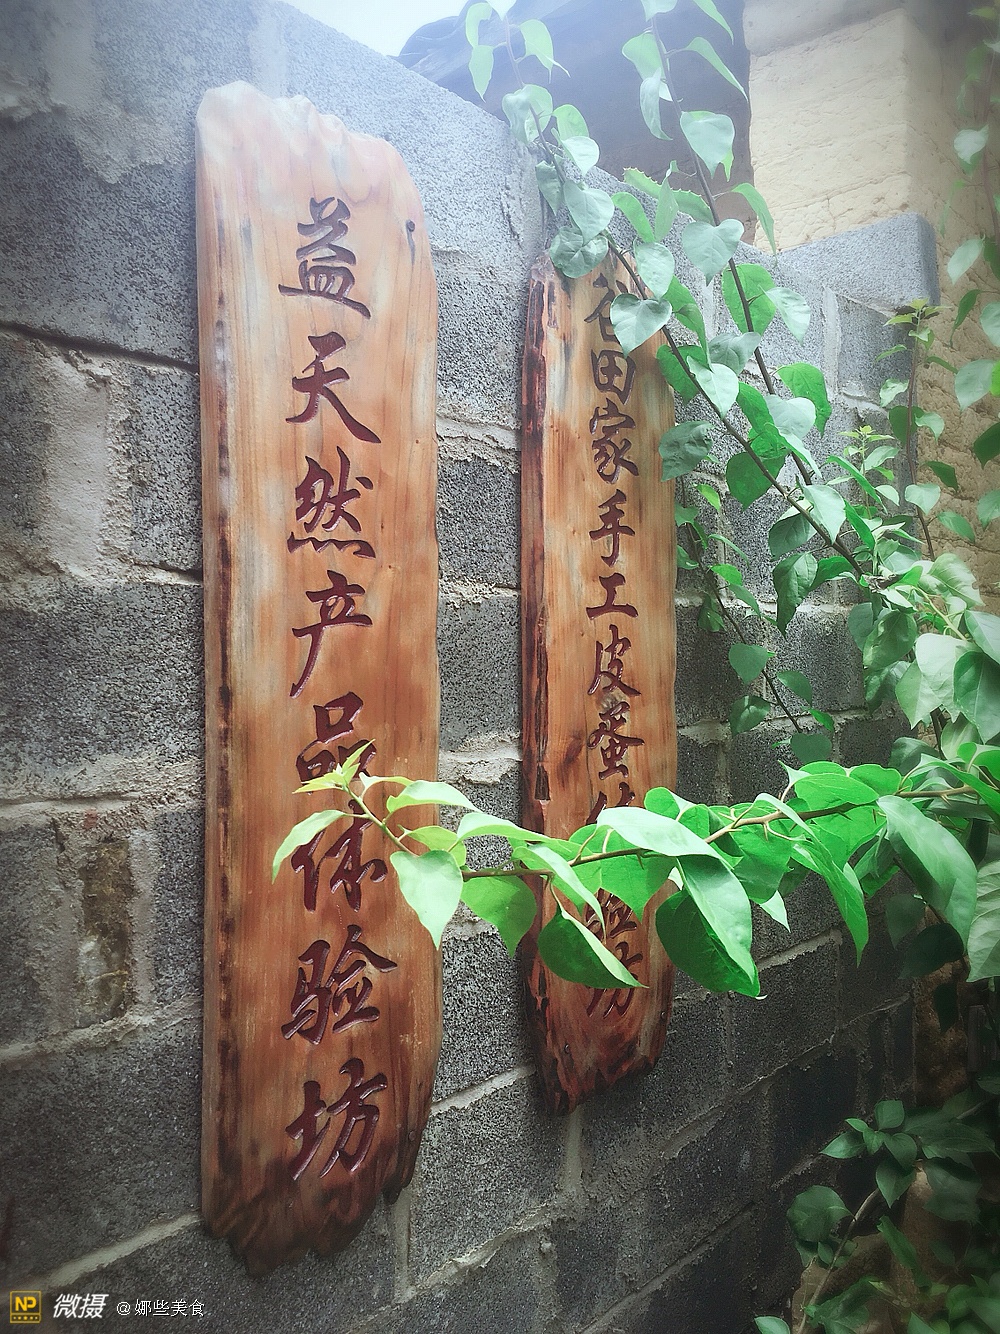 益天然产品体验坊
谷田家手工皮蛋体验坊
NP 微摄 @娜些美食